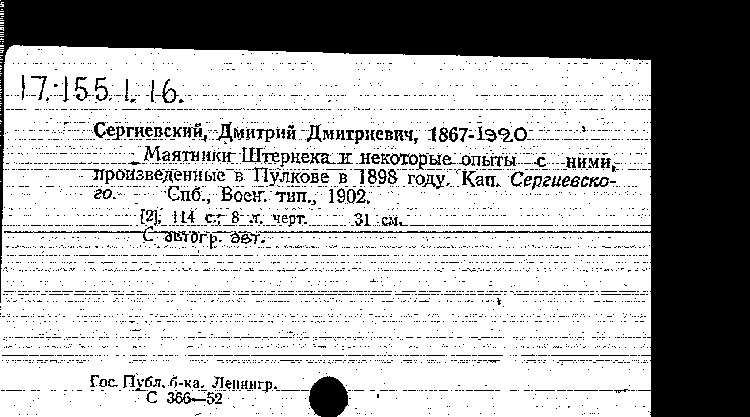 17.155.1.16.
Сергиевский, Дмитрий Дмитриевич, 1867-1920
Маятники Штернека и некоторые опыты с ними,
произведенные в Пулкове в 1898 году. Кап. Сергиевско-
го. Спб., Воен. тип., 1902.
[2], 114 с.; 8 л. черт. 31 см.
С автогр. авт.
Гос. Публ. б-ка. Ленингр.
С 366—52